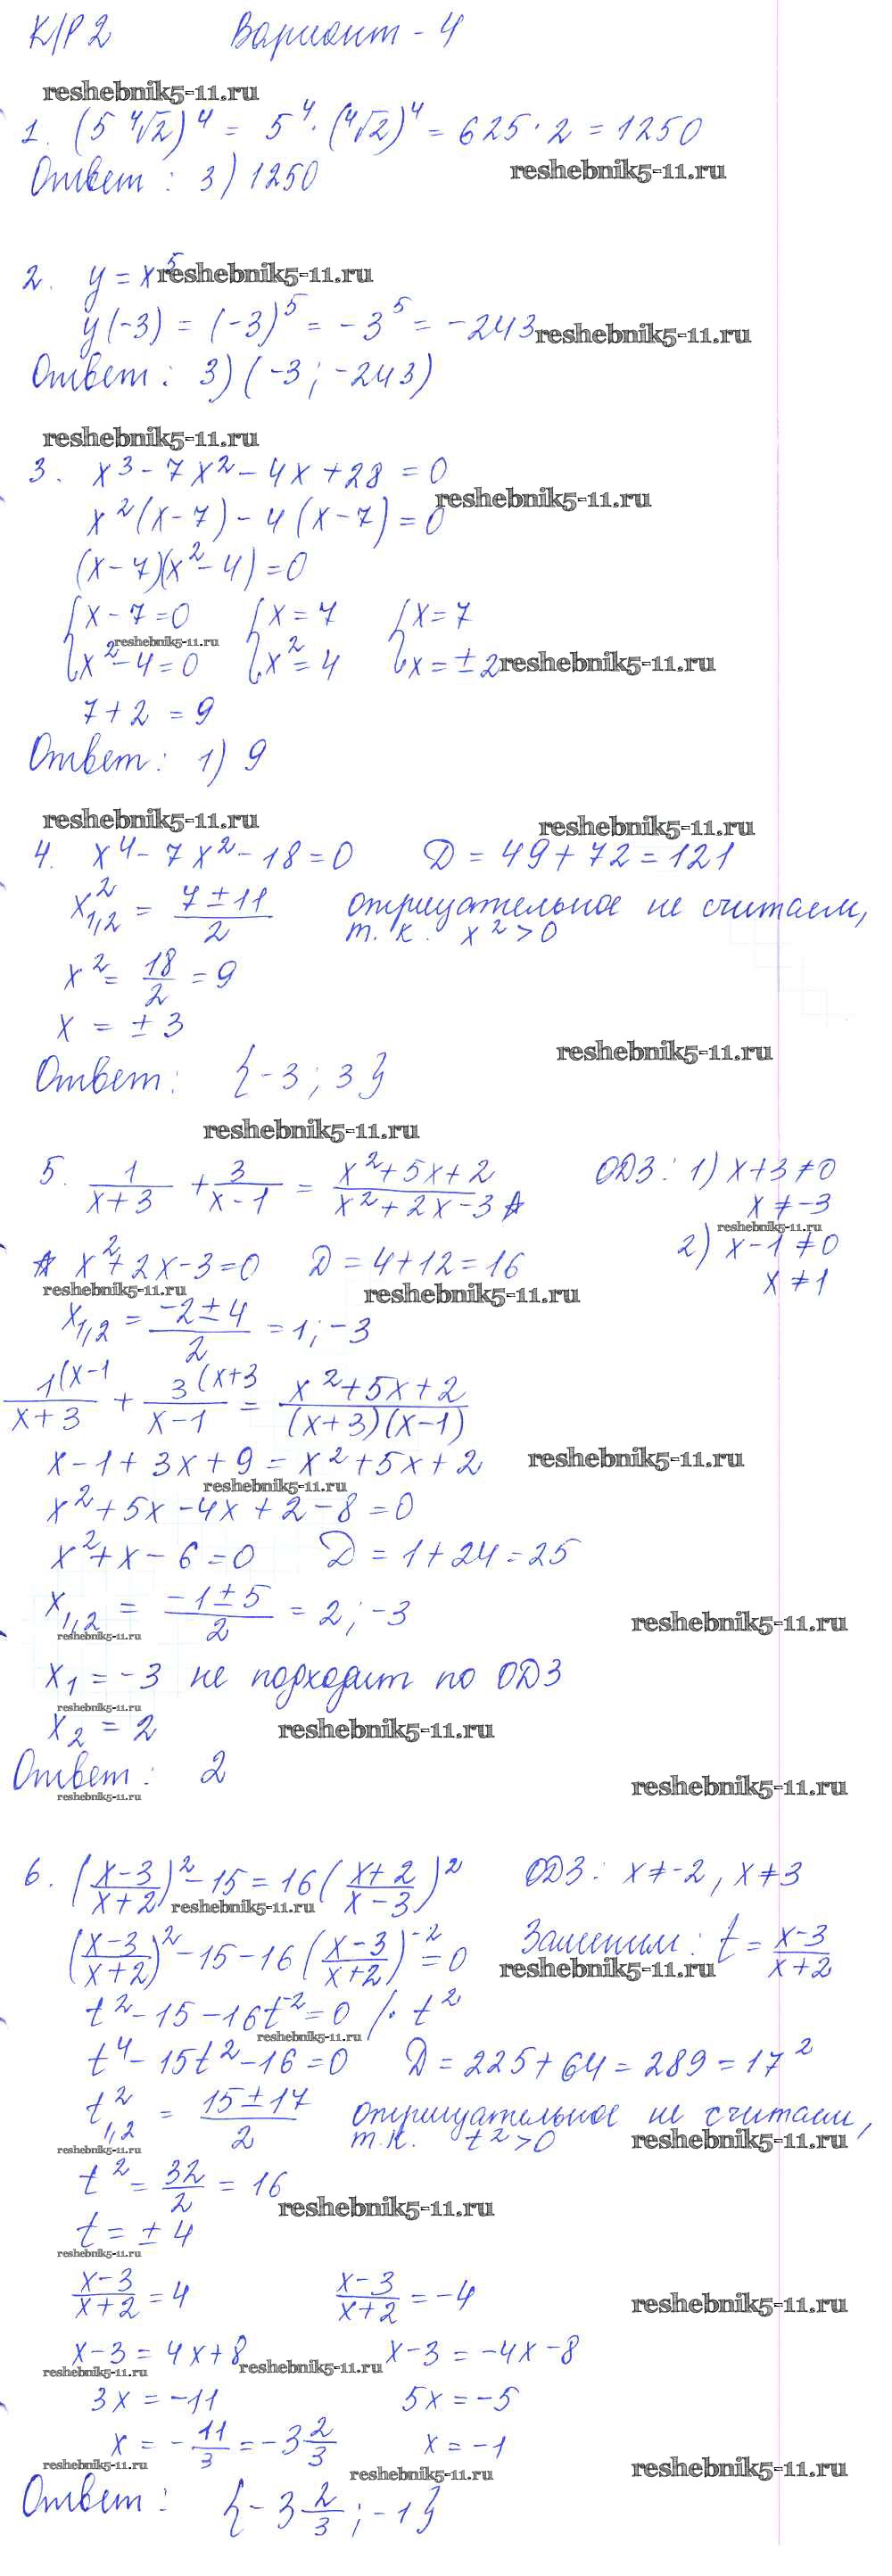 К/Р 2 Вариант - 4
reshebnik5-11.ru
1. (5 ⁴√2)⁴ = 5⁴ · (⁴√2)⁴ = 625 · 2 = 1250
Ответ: 3) 1250
reshebnik5-11.ru
2. y = x⁵
reshebnik5-11.ru
y(-3) = (-3)⁵ = -3⁵ = -243
reshebnik5-11.ru
Ответ: 3) (-3; -243)
reshebnik5-11.ru
3. x³ - 7x² - 4x + 28 = 0
reshebnik5-11.ru
x²(x-7) - 4(x-7) = 0
(x-7)(x²-4) = 0
{x-7=0 {x=7 {x=7
reshebnik5-11.ru
{x²-4=0 {x²=4 {x=±2
reshebnik5-11.ru
7+2 = 9
Ответ: 1) 9
reshebnik5-11.ru
reshebnik5-11.ru
4. x⁴ - 7x² - 18 = 0 D = 49 + 72 = 121
x²₁,₂ = (7±11)/2 отрицательное не считаем,
т.к. x² > 0
x² = 18/2 = 9
x = ± 3
reshebnik5-11.ru
Ответ: {-3; 3}
reshebnik5-11.ru
5. 1/(x+3) + 3/(x-1) = (x²+5x+2)/(x²+2x-3) ☆ ОДЗ: 1) x+3≠0
x ≠ -3
reshebnik5-11.ru
☆ x²+2x-3=0 D = 4+12 = 16 2) x-1≠0
reshebnik5-11.ru
reshebnik5-11.ru
x ≠ 1
x₁,₂ = (-2±4)/2 = 1; -3
1(x-1/(x+3) + 3(x+3/(x-1) = (x²+5x+2)/((x+3)(x-1))
x-1+3x+9 = x²+5x+2
reshebnik5-11.ru
reshebnik5-11.ru
x²+5x-4x+2-8=0
x²+x-6=0 D = 1+24=25
x₁,₂ = (-1±5)/2 = 2; -3
reshebnik5-11.ru
reshebnik5-11.ru
x₁ = -3 не подходит по ОДЗ
reshebnik5-11.ru
x₂ = 2
reshebnik5-11.ru
Ответ: 2
reshebnik5-11.ru
reshebnik5-11.ru
6. ((x-3)/(x+2))² - 15 = 16((x+2)/(x-3))² ОДЗ: x≠-2, x≠3
reshebnik5-11.ru
((x-3)/(x+2))² - 15 - 16((x-3)/(x+2))⁻² = 0 Заменим: t = (x-3)/(x+2)
reshebnik5-11.ru
t² - 15 - 16t⁻² = 0 /· t²
reshebnik5-11.ru
t⁴ - 15t² - 16 = 0 D = 225 + 64 = 289 = 17²
t²₁,₂ = (15±17)/2 отрицательное не считаем,
т.к. t² > 0
reshebnik5-11.ru
reshebnik5-11.ru
t² = 32/2 = 16
reshebnik5-11.ru
t = ± 4
reshebnik5-11.ru
(x-3)/(x+2) = 4 (x-3)/(x+2) = -4
reshebnik5-11.ru
x-3 = 4x+8 x-3 = -4x-8
reshebnik5-11.ru
reshebnik5-11.ru
3x = -11 5x = -5
x = -11/3 = -3 2/3 x = -1
reshebnik5-11.ru
reshebnik5-11.ru
reshebnik5-11.ru
Ответ: {-3 2/3; -1}